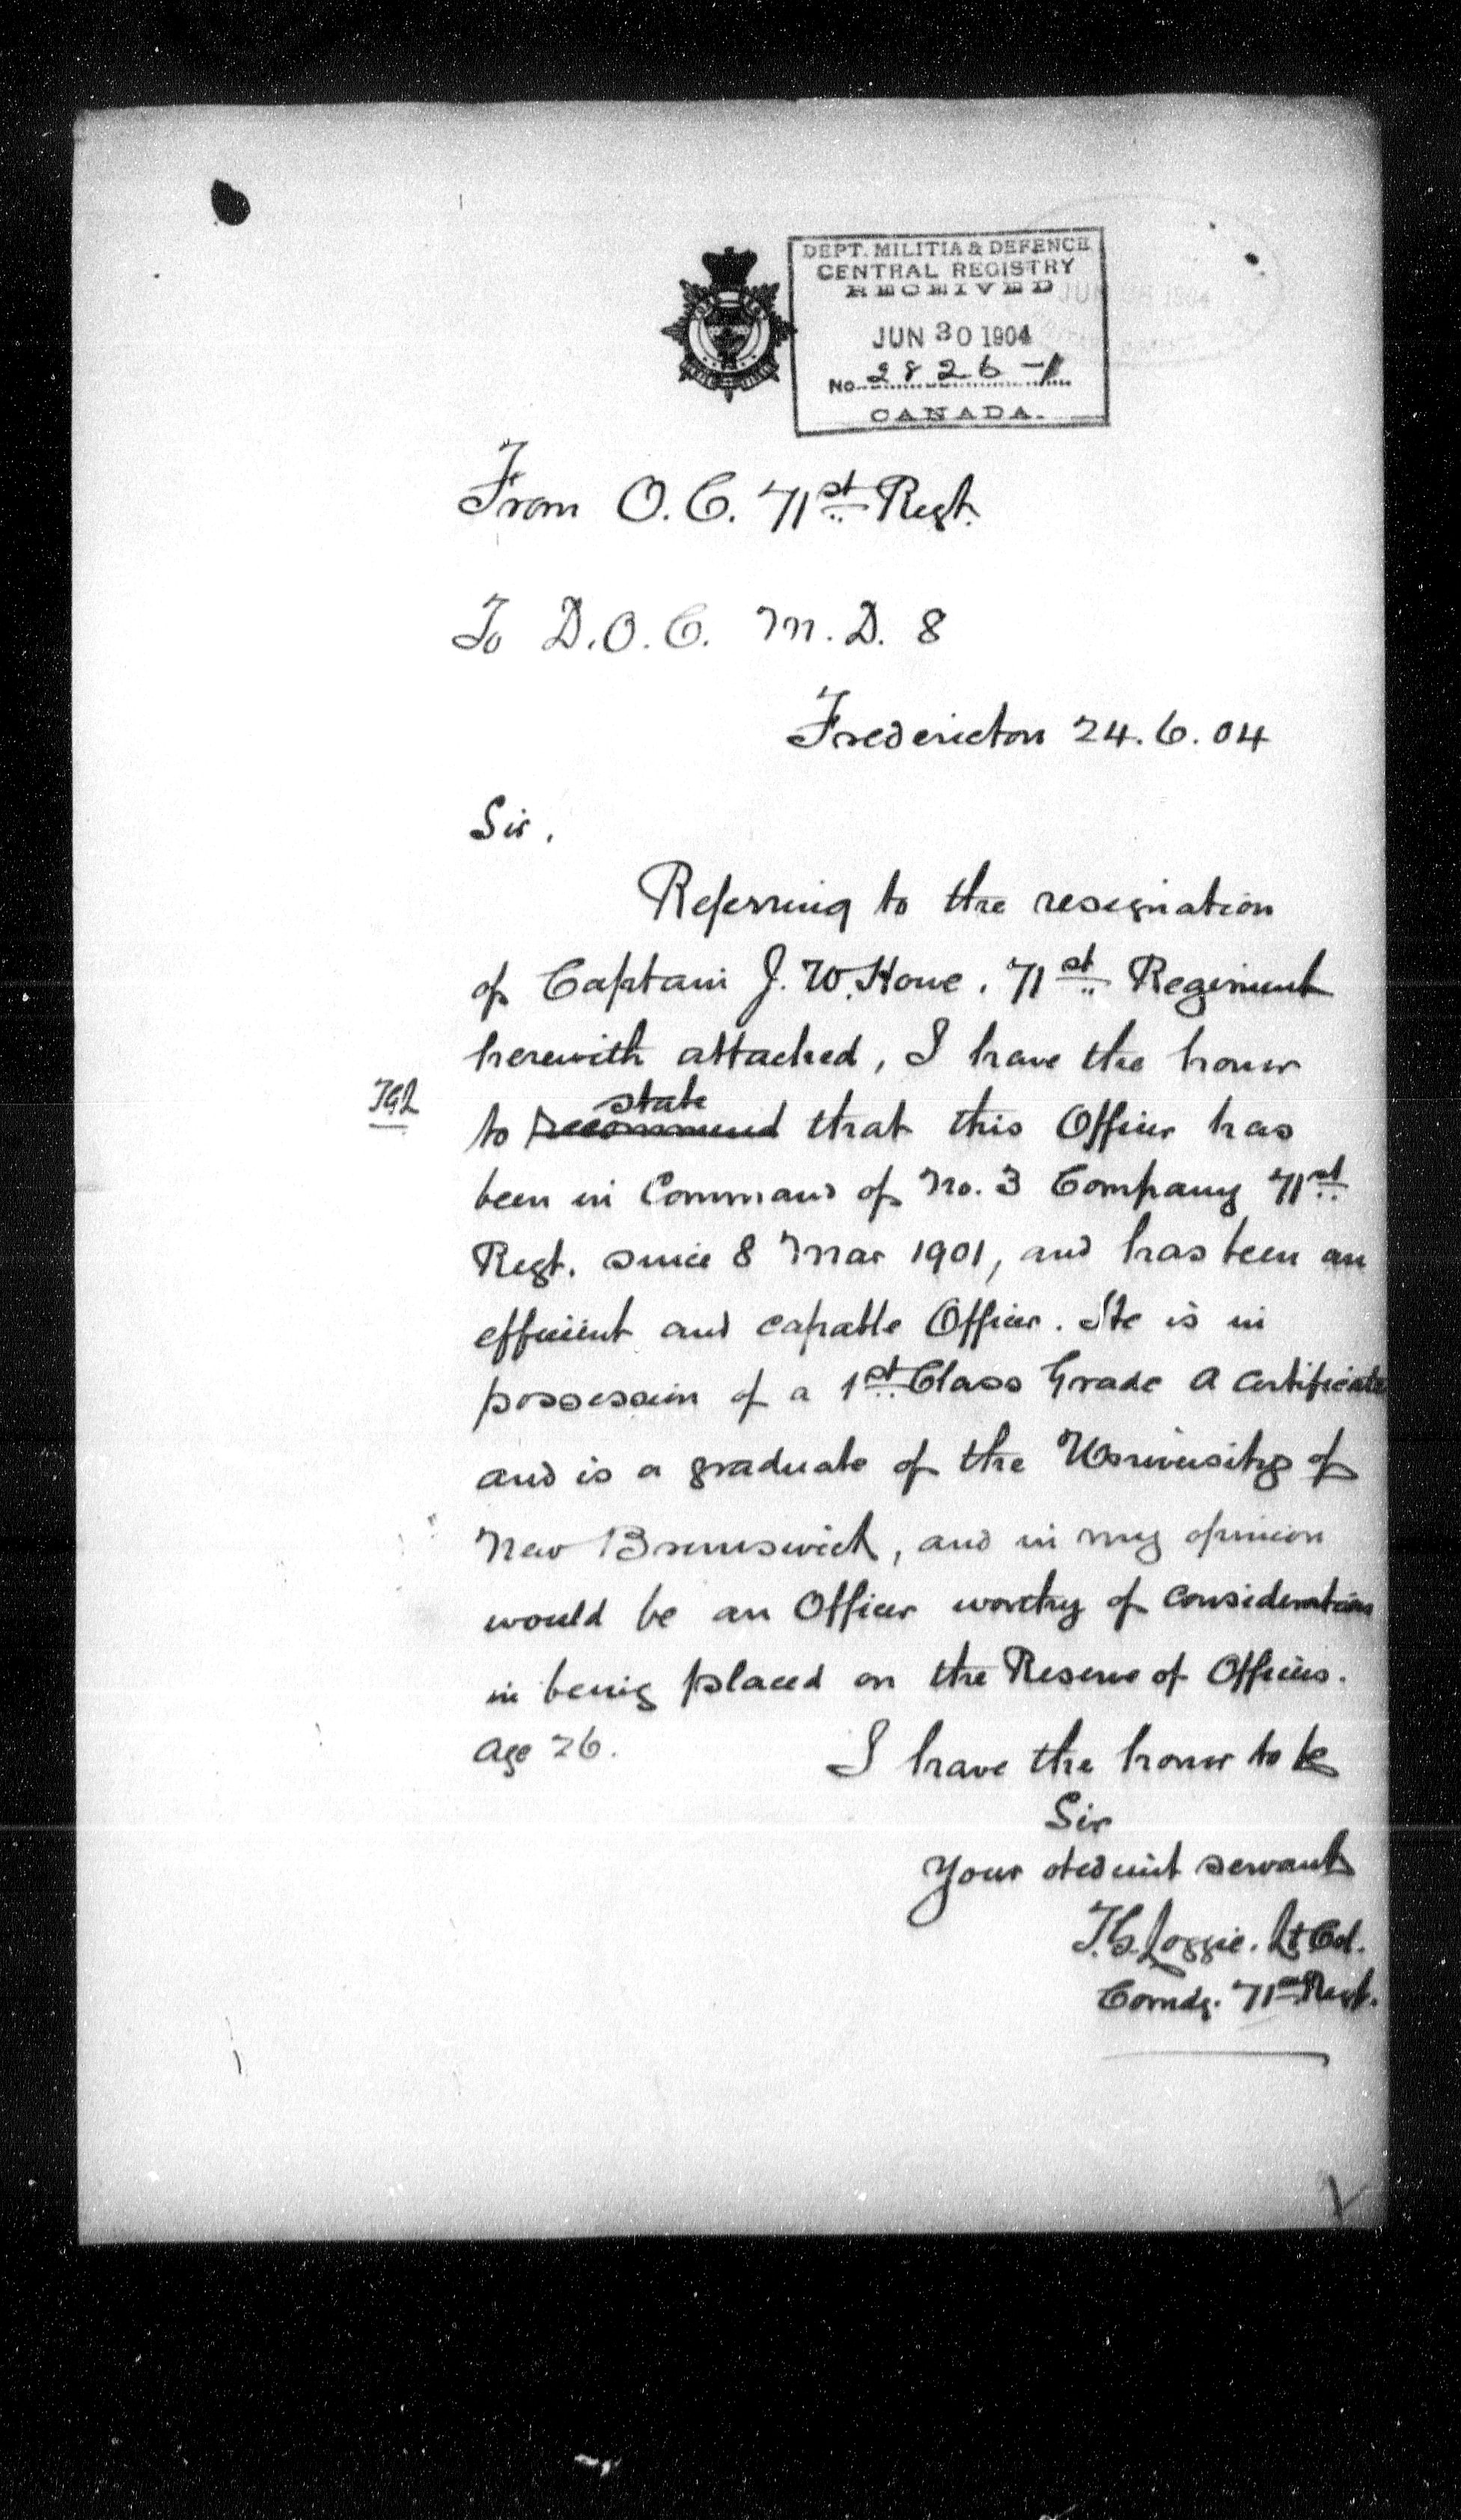 DEPT. MILITIA & DEFENCE
CENTRAL REGISTRY
RECEIVED
JUN 30 1904
No. 2826-1
CANADA.
From O.C. 71st Regt.
To D.O.C. M.D. 8
Fredericton 24.6.04
Sir,
Referring to the resignation
of Captain J. W. Howe, 71st Regiment
herewith attached, I have the honor
TGL
state
to recommend that this Officer has
been in Command of No. 3 Company 71st
Regt. since 8 Mar 1901, and has been an
efficient and capable Officer. He is in
possession of a 1st Class Grade A certificate
and is a graduate of the University of
New Brunswick, and in my opinion
would be an Officer worthy of consideration
in being placed on the Reserve of Officers.
Age 26.
I have the honor to be
Sir
Your obedient servant
T.G. Loggie. Lt Col.
Comdg. 71st Regt.